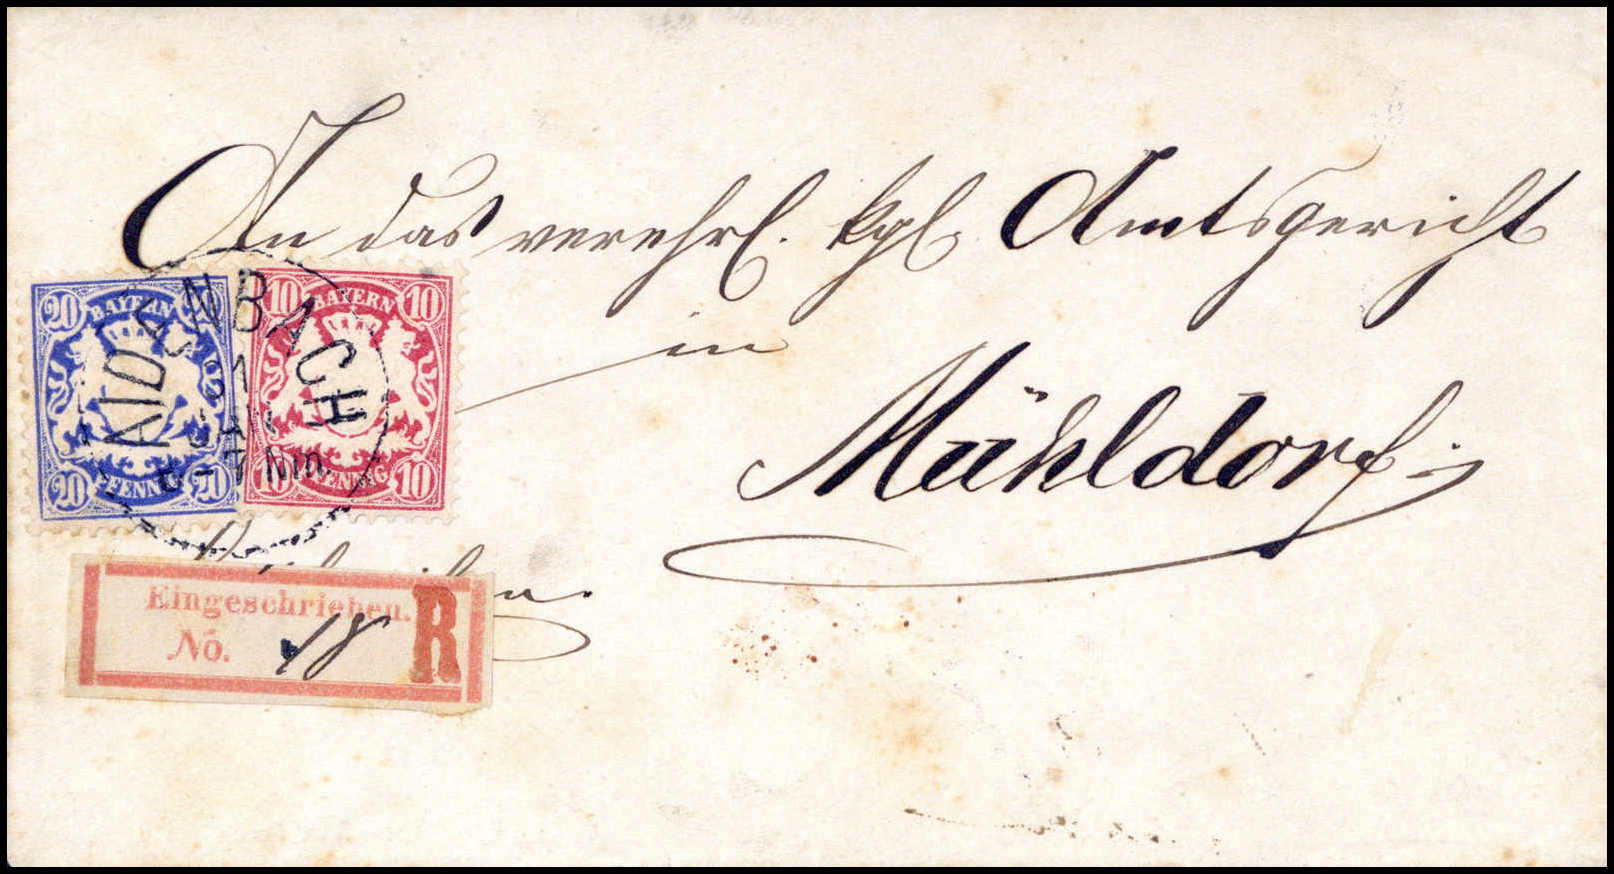 An das verehrl. kgl. Amtsgericht
in
Mühldorf.
20 20
BAYERN
PFENNIG
20 20
10 10
BAYERN
PFENNIG
10 10
AIDENBACH
JAN
7 Nm.
Eingeschrieben.
No. 18
R